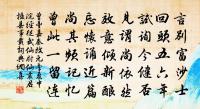 言別富沙士
回頭五六年
試詢今健否
謂見尚依然
故意傾新釀
忘懷誦近篇
尚其頻記憶
曾此一留連